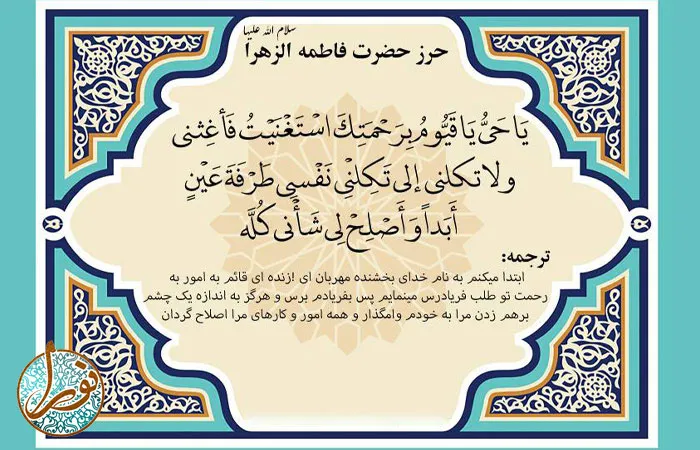 سلام الله علیها
حرز حضرت فاطمه الزهرا
يَا حَيُّ يَا قَيُّومُ بِرَحْمَتِكَ اسْتَغْنَيْتُ فَأَغِثْنى
ولا تكلنى إلى تَكِلْنِى نَفْسِى طَرْفَةَ عَيْنٍ
أَبَداً وَ أَصْلِحْ لِى شَأْنى كُلَّه
ترجمه:
ابتدا میکنم به نام خدای بخشنده مهربان ای !زنده ای قائم به امور به
رحمت تو طلب فریادرس مینمایم پس بفریادم برس و هرگز به اندازه یک چشم
برهم زدن مرا به خودم وامگذار و همه امور و کارهای مرا اصلاح گردان